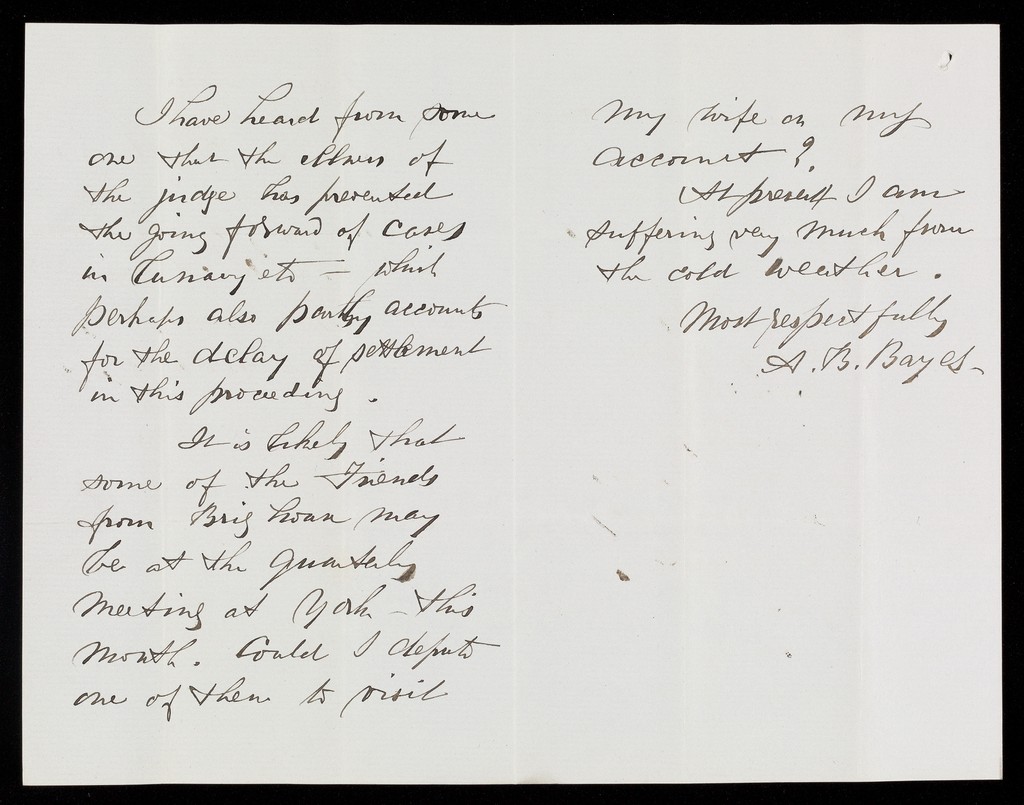 I have heard from some
one that the illness of
the judge has prevented
the going forward of cases
in Lunacy etc – which
perhaps also partly accounts
for the delay of settlement
in this proceeding.
It is likely that
some of the Friends
from Brig house may
be at the Quarterly
Meeting at York – this
month. Could I depute
one of them to visit
my wife on my
account?
At present I am
suffering very much from
the cold weather.
Most respectfully
A. B. Bayes –